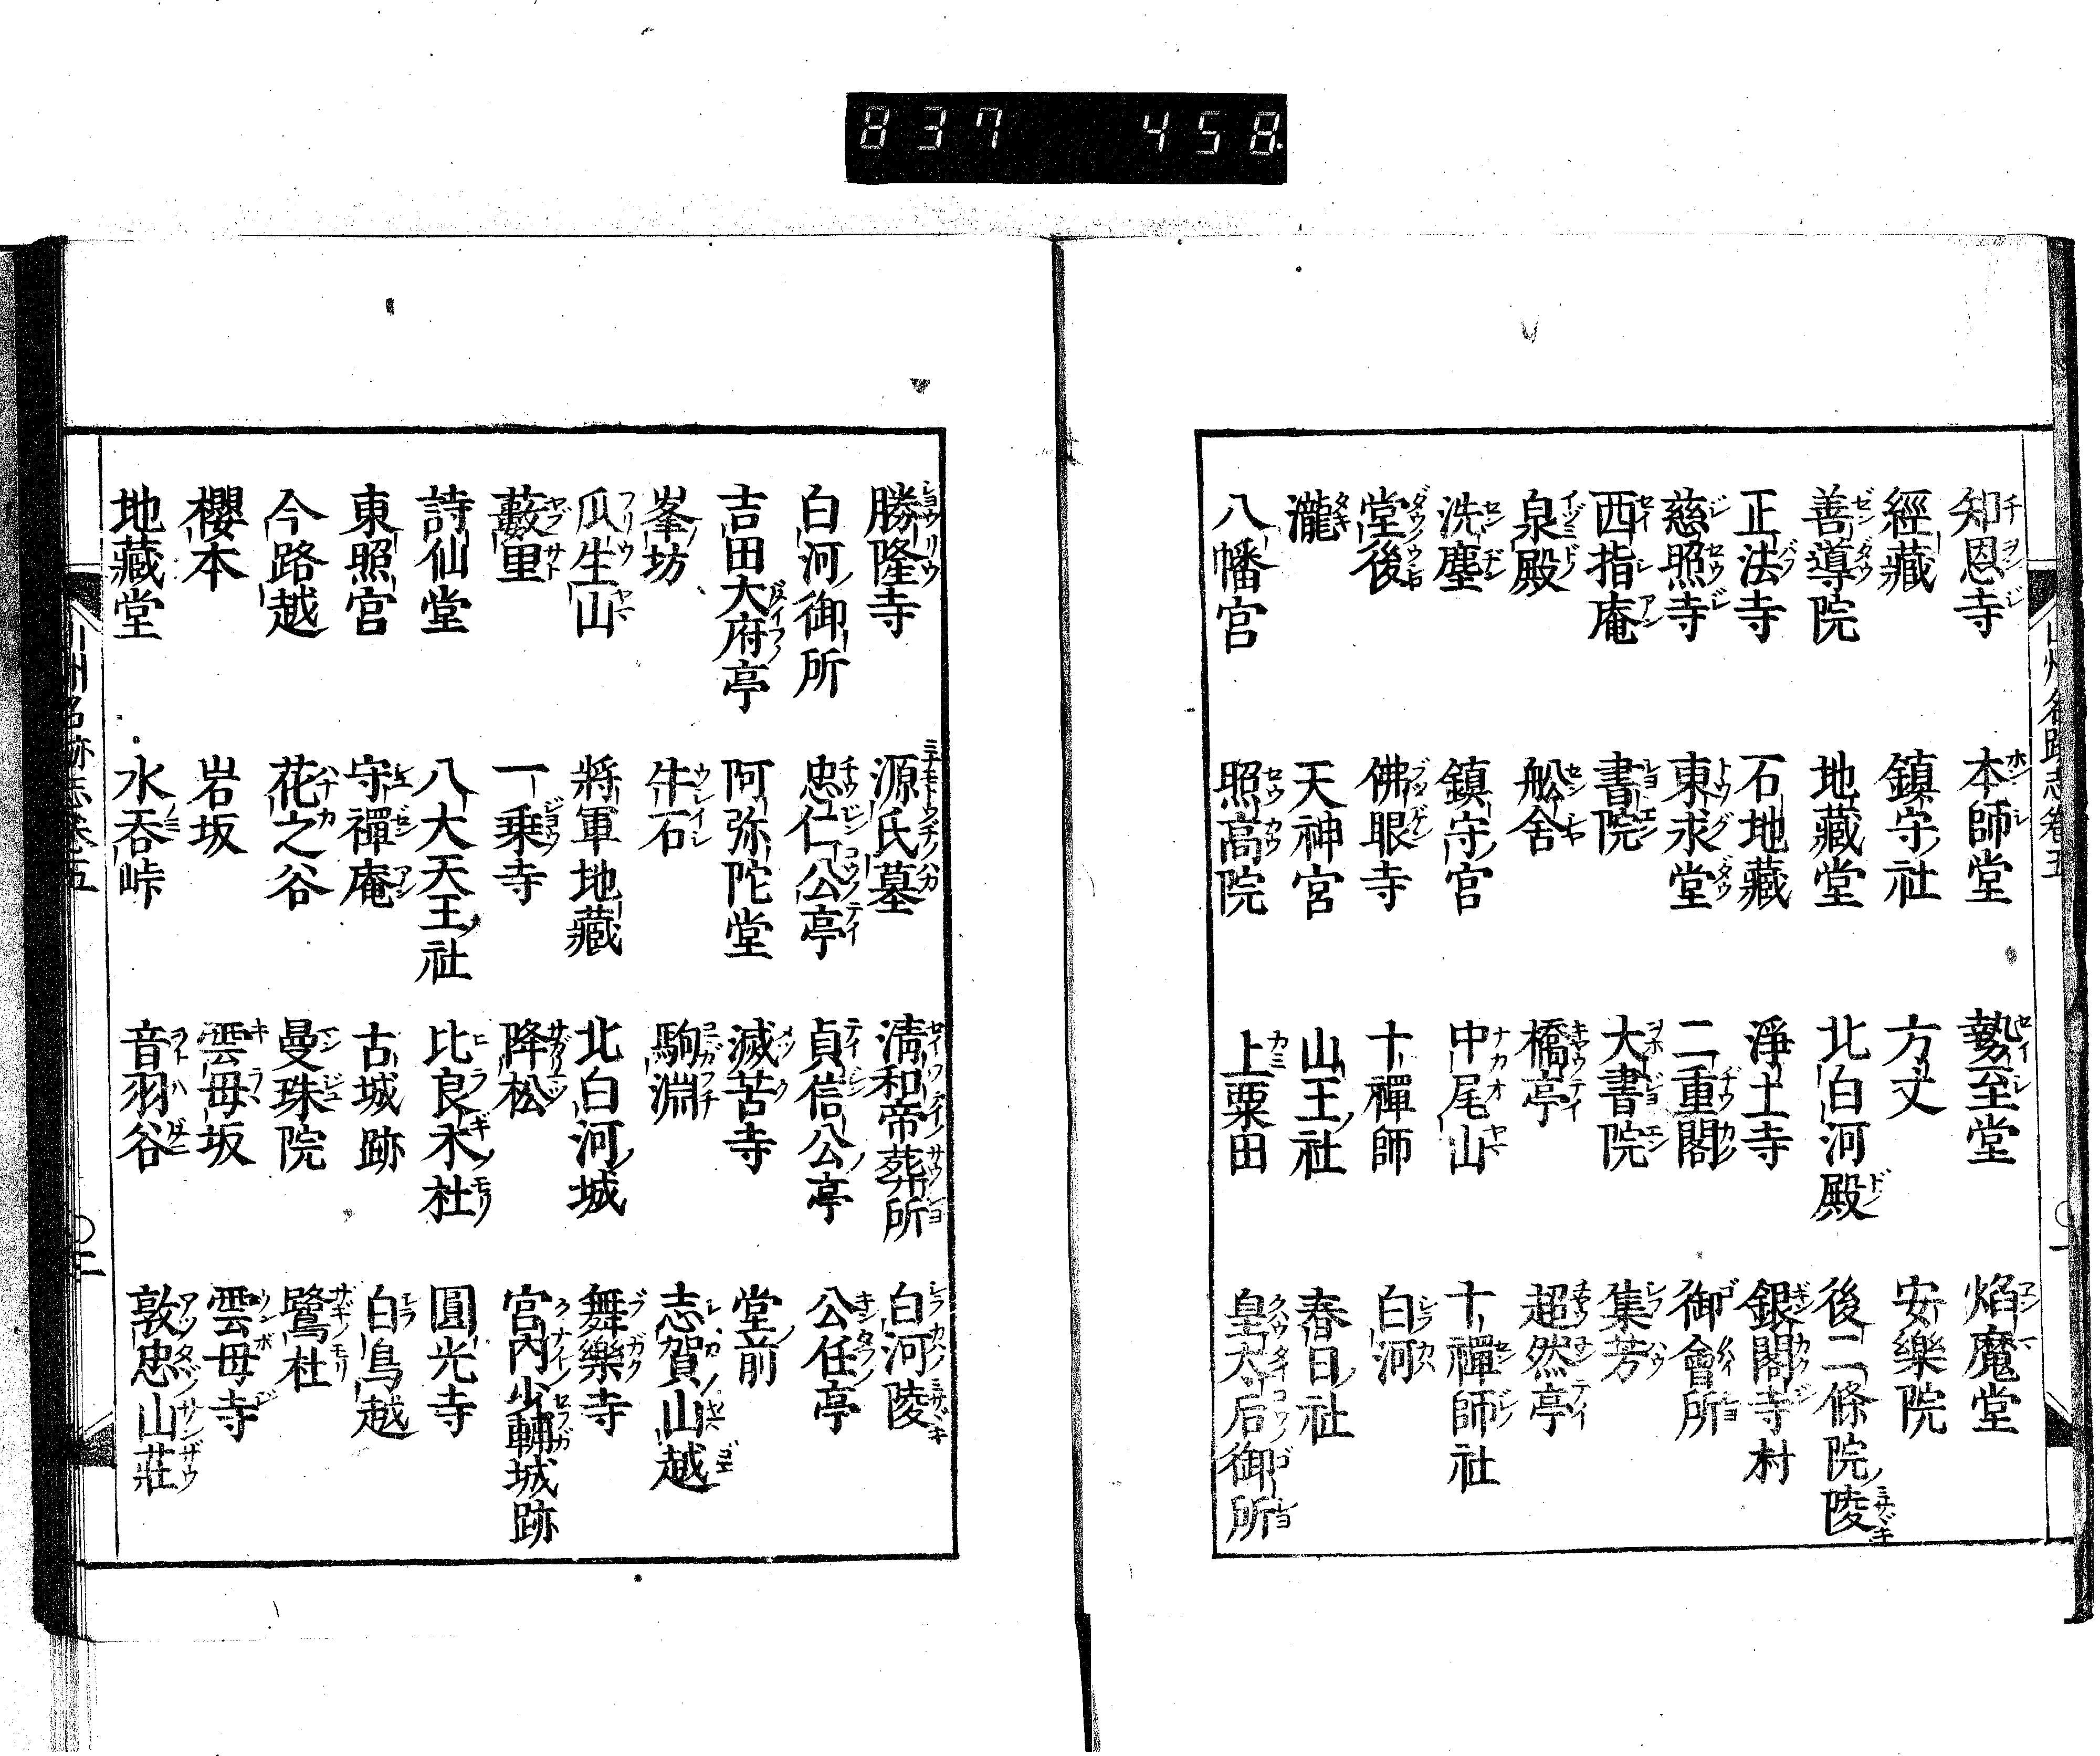 837 458
知恩寺 本師堂 勢至堂 焔魔堂
經藏 鎮守社 方丈 安樂院
善導院 地藏堂 北白河殿 後二條院ノ陵
正法寺 石地藏 淨土寺 銀閣寺村
慈照寺 東求堂 二重閣 御會所
西指庵 書院 大書院 集芳
泉殿 舩舍 橋亭 超然亭
洗塵 鎮守ノ宮 中尾山 十禪師社
堂後 佛眼寺 十禪師 白河
瀧 天神宮 山王ノ社 春日ノ社
八幡宮 照高院 上粟田 皇太后御所
勝隆寺 源氏墓 淸和帝葬所 白河陵
白河ノ御所 忠仁公亭 貞信公ノ亭 公任亭
吉田大府亭 阿弥陀堂 滅苦寺 堂ノ前
峯ノ坊 牛石 駒淵 志賀ノ山越
瓜生山 將軍地藏 北白河ノ城 舞樂寺
藪里 一乗寺 降松 宮內少輔城跡
詩仙堂 八大天王ノ社 比良木ノ杜 圓光寺
東照宮 守禪庵 古城跡 白鳥越
今路越 花之谷 曼珠院 鷺杜
櫻本 岩坂 雲母坂 雲母寺
地藏堂 水呑峠 音羽谷 敦忠山莊